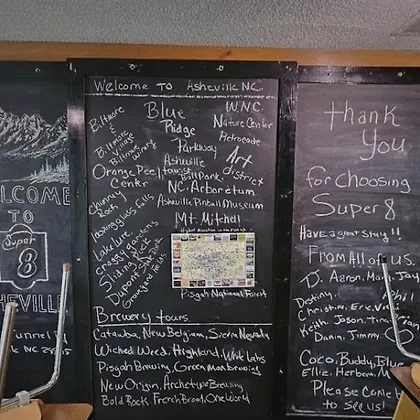 WELCOME
TO
Super
8
ASHEVILLE
Tunnel
NC
Welcome TO Asheville NC.
Biltmore
&
Biltmore
Village
Biltmore Winery
Blue
Ridge
Parkway
Asheville
tourist
Ballpark
WNC
Nature Center
Art
District
Orange Peel
Center
NC. Arboretum
Asheville Pinball Museum
Mt Mitchell
Chimney
Rock
Looking glass Falls
Lake Lure
Craggy gardens
Sliding Rock
Dupont State Park
Grovewood
Pisgah National Forest
Brewery tours
Catawba, New Belgium, Sierra Nevada
Wicked Weed, Highland, White Labs
Pisgah Brewing, Green Man brewing
New Origin, Archetype Brewing
Bold Rock, French Broad, One World
thank
You
for choosing
Super 8
Have a great stay!!
From All of us.
TJ. Aaron, Mark, Jay
Destiny,
Christine, Eric,
Keith, Jason, Tina
Danin, Jimmy,
Coco, Buddy, Blue
Ellie, Herbert, M
Please Come
to see us!